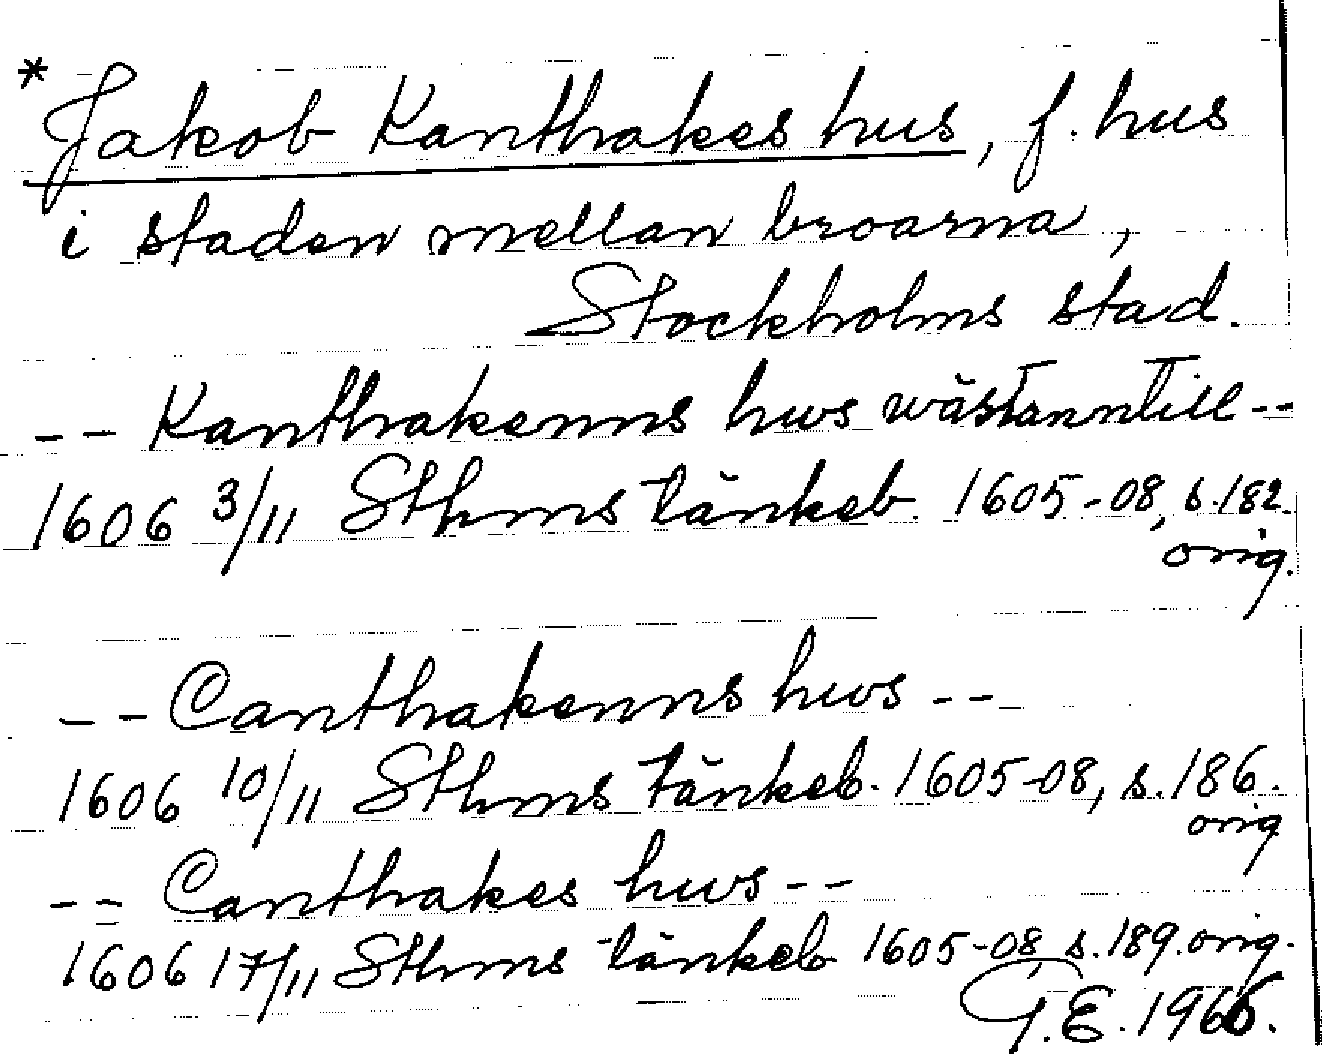 * Jakob Kanthakes hus, f. hus
i staden mellan broarna,
Stockholms stad.
-- Kanthakenns hws wästanntill --
1606 3/11 Sthms tänkeb. 1605-08, s. 182.
orig.
-- Canthakenns hws --
1606 10/11 Sthms tänkeb. 1605-08, s. 186.
orig
-- Canthakes hws --
1606 17/11 Sthms tänkeb 1605-08, s. 189. orig.
G.E. 1966.